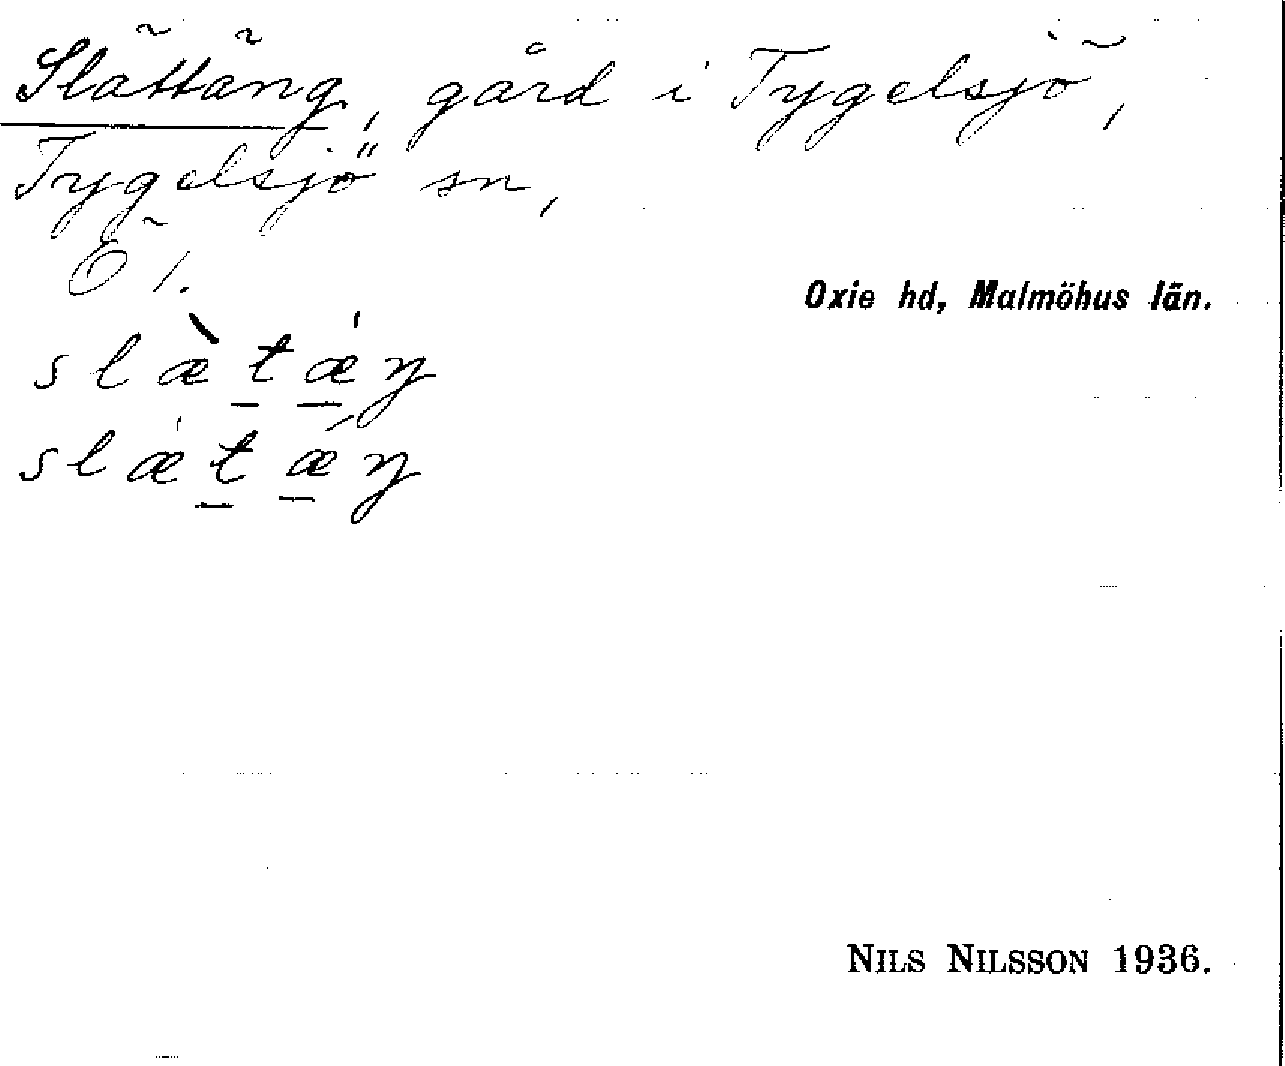 Slättäng, gård i Tygelsjö,
Tygelsjö sn,
Ö 1.
Oxie hd, Malmöhus län.
slæ̀tǽŋ
slǽtæŋ
NILS NILSSON 1936.